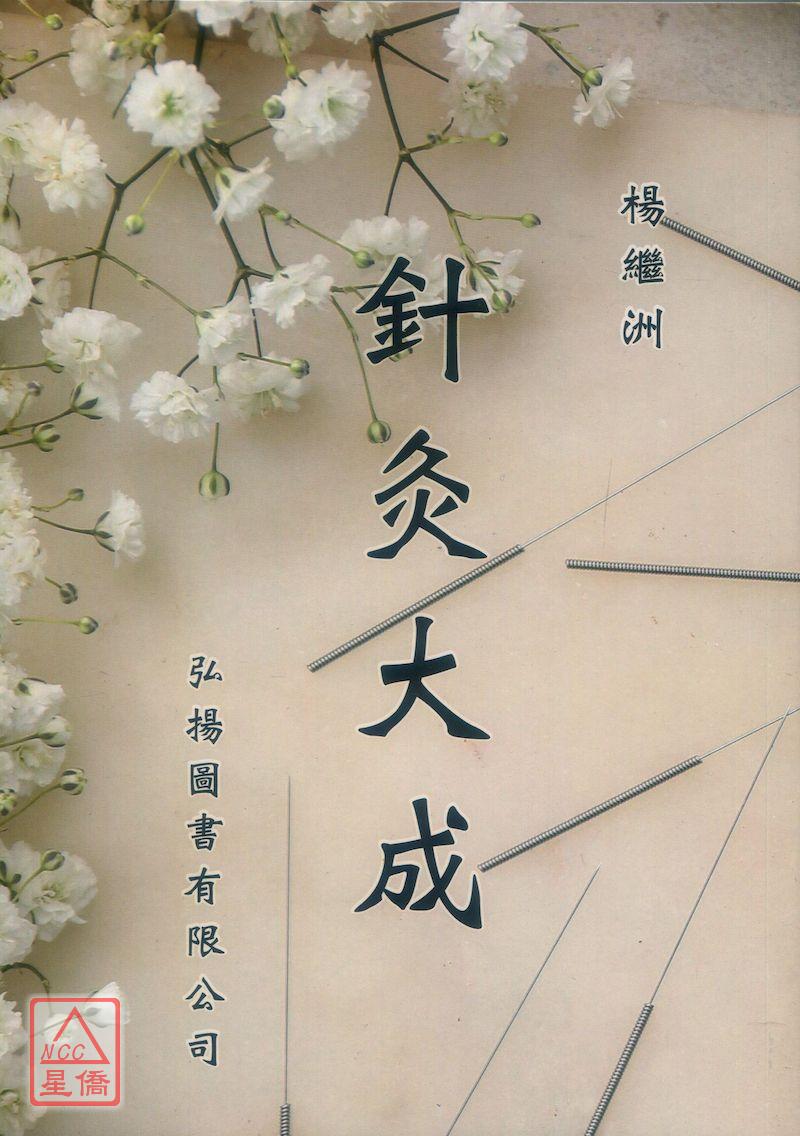 楊繼洲
針灸大成
弘揚圖書有限公司
NCC
星僑